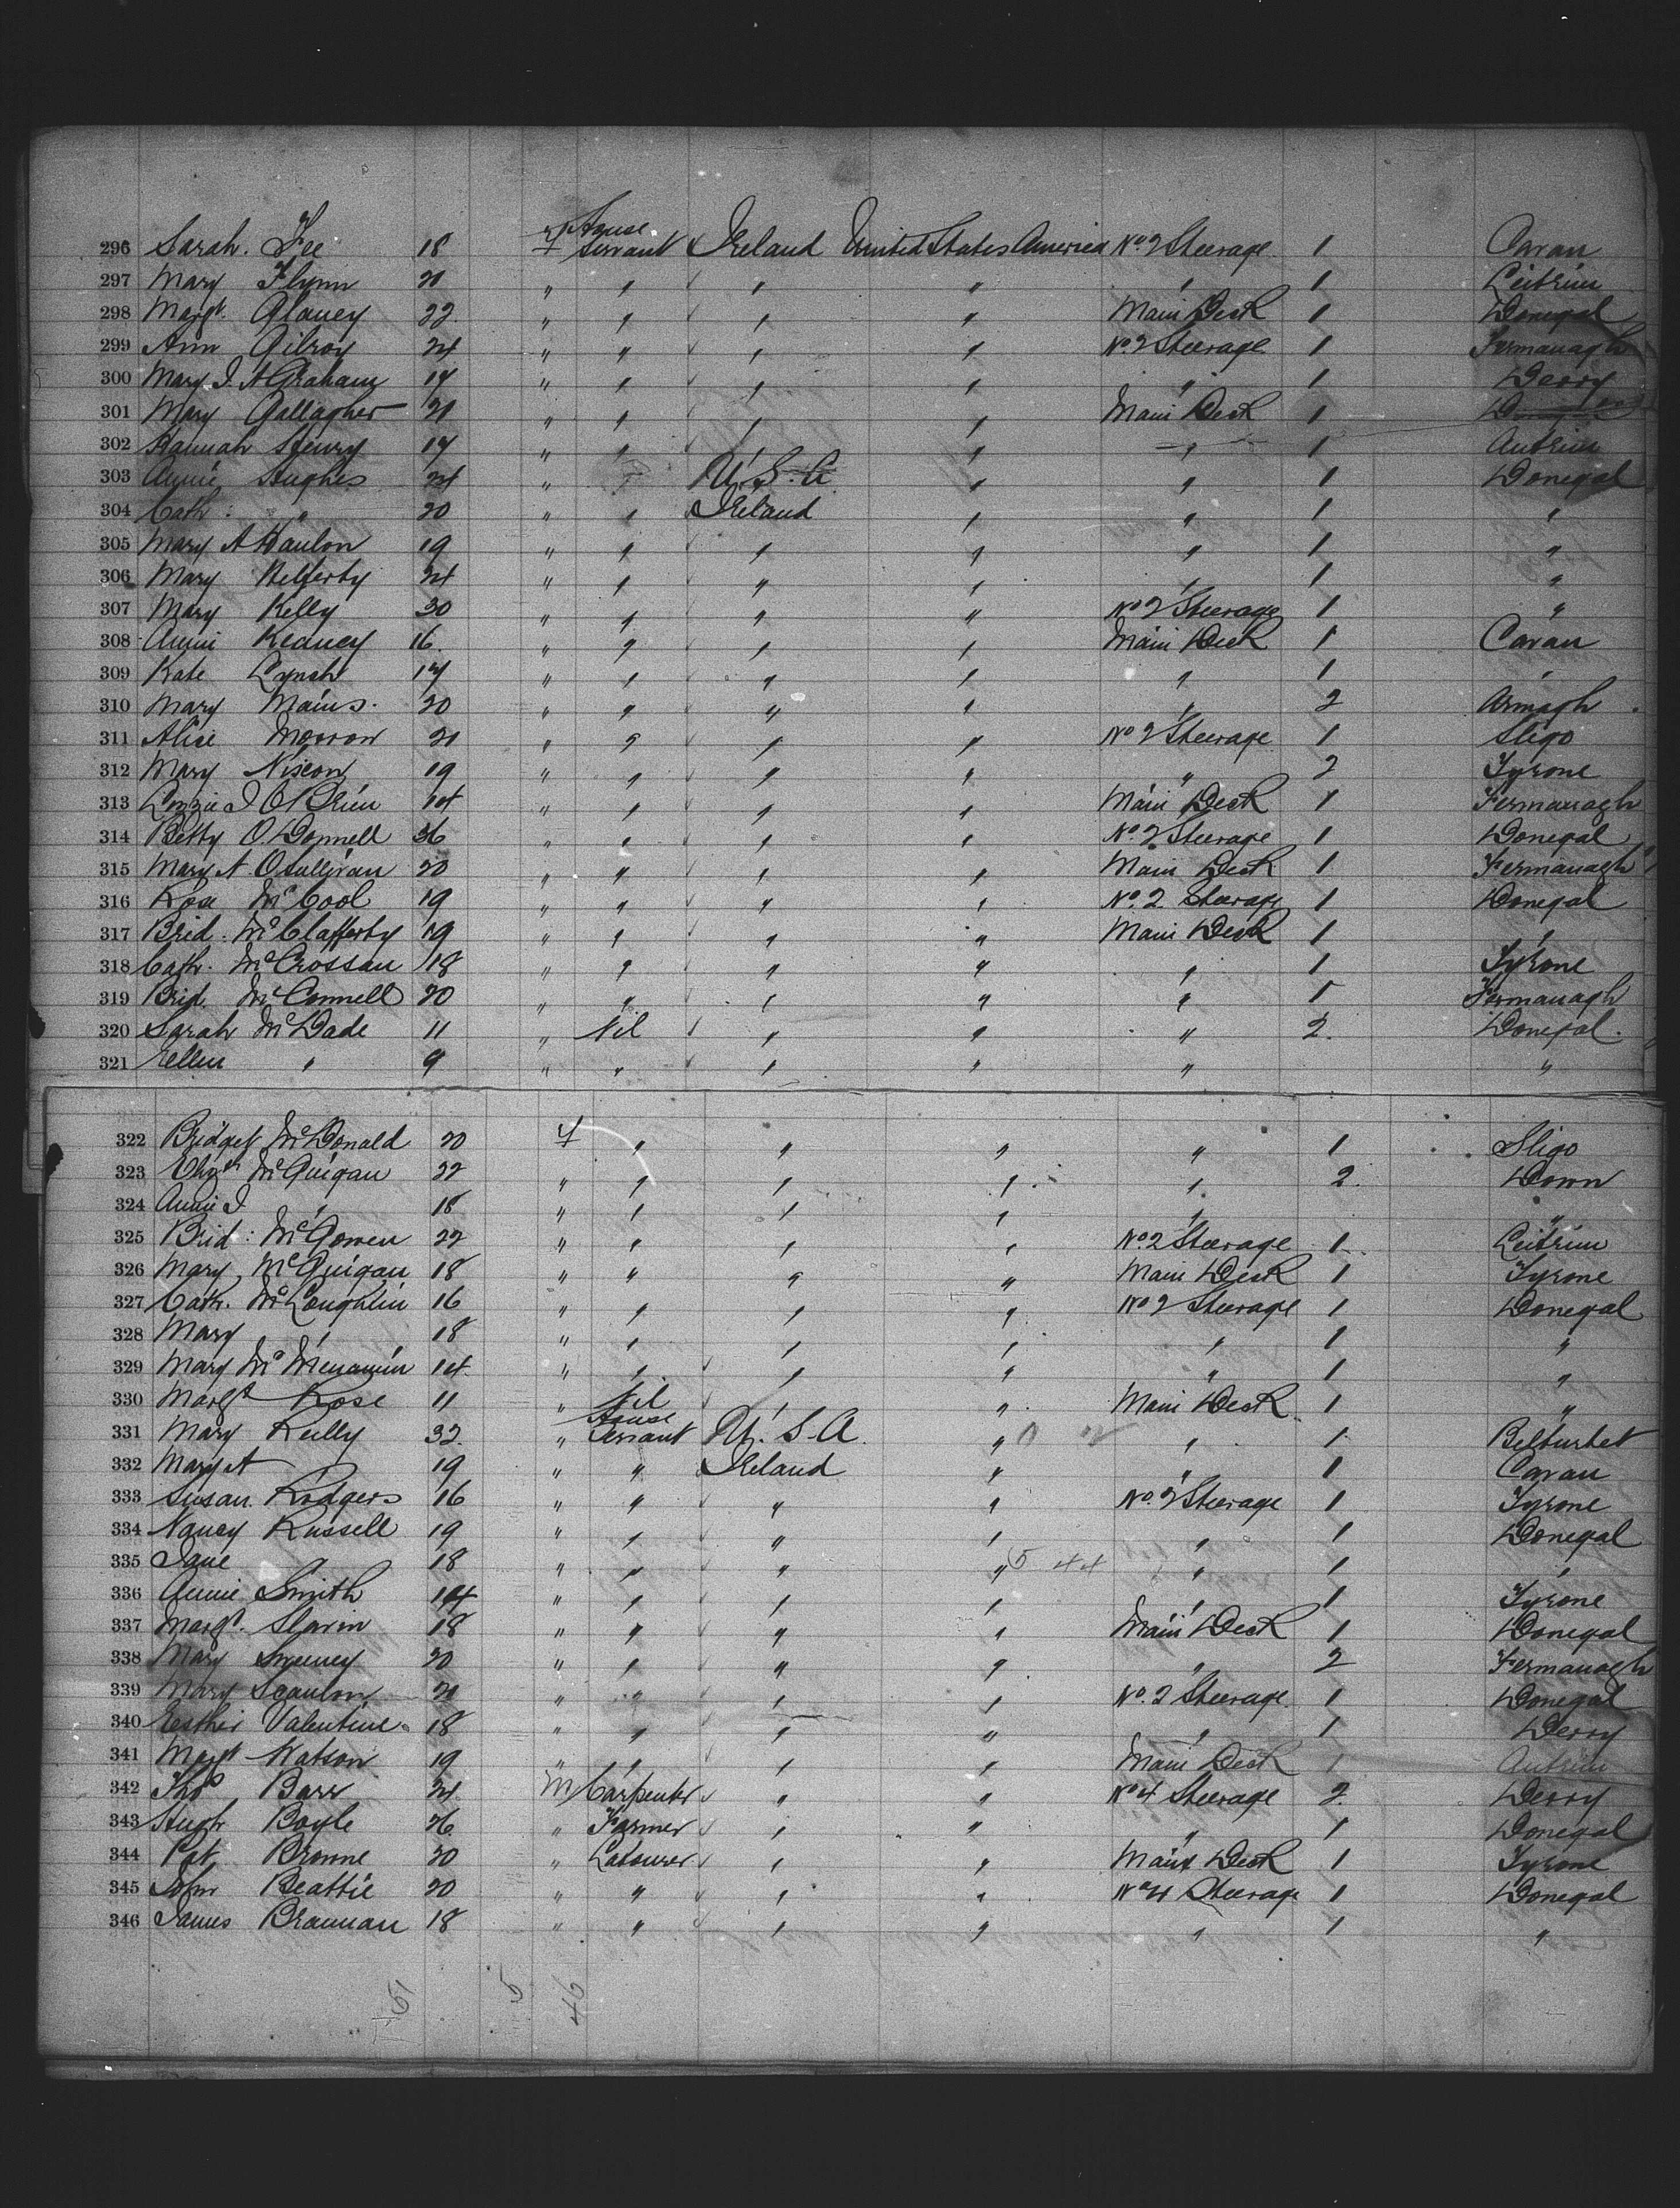 296 Sarah. Fee 18 f House Servant Ireland United States America No. 2 Steerage 1 Cavan
297 Mary Flynn 21 " " " " " 1 Leitrim
298 Margt. Glancy 22 " " " " Main Deck 1 Donegal
299 Ann Gilroy 24 " " " " No. 2 Steerage 1 Fermanagh
300 Mary J. A Graham 17 " " " " " 1 Derry
301 Mary Gallagher 21 " " " " Main Deck 1
302 Hannah Henry 17 " " " " " 1 Antrim
303 Annie Hughes 24 " " U.S.A " " 1 Donegal
304 Cath: " 20 " " Ireland " " 1 "
305 Mary A Hanlon 19 " " " " " 1 "
306 Mary Helferty 24 " " " " " 1 "
307 Mary Kelly 30 " " " " No 2 Steerage 1 "
308 Annie Keaney 16 " " " " Main Deck 1 Cavan
309 Kate Lynch 17 " " " " " 1 "
310 Mary Mains. 20 " " " " " 2 Armagh
311 Alice Morrow 21 " " " " No 2 Steerage 1 Sligo
312 Mary Nixon 19 " " " " " 2 Tyrone
313 Lizzie J O'Brien 14 " " " " Main Deck 1 Fermanagh
314 Betty O.Donnell 36 " " " " No 2 Steerage 1 Donegal
315 Mary A. Osullivan 20 " " " " Main Deck 1 Fermanagh
316 Rose McCool 19 " " " " No. 2 Steerage 1 Donegal
317 Brid. McClafferty 19 " " " " Main Deck 1 "
318 Cath. McCrossan 18 " " " " " 1 Tyrone
319 Brid. McConnell 20 " " " " " 1 Fermanagh
320 Sarah McDade 11 " Nil " " " 2. Donegal.
321 Ellen " 9 " " " " " "
322 Bridget McDonald 20 f " " " " 1 Sligo
323 Elizth McGuigan 22 " " " " " 2. Down
324 Annie J. " 18 " " " " " "
325 Brid: McGowen 22 " " " " No. 2 Steerage 1 Leitrim
326 Mary McGuigan 18 " " " " Main Deck 1 Tyrone
327 Cath. McLoughlin 16 " " " " No 2 Steerage 1 Donegal
328 Mary " 18 " " " " " 1 "
329 Mary McMenamin 14. " " " " " 1 "
330 Margt Rose 11 " Nil " " Main Deck 1 "
331 Mary Reilly 32. " House Servant U.S.A. " " 1 Belturbet
332 Mary A 19 " " Ireland " " 1 Cavan
333 Susan. Rodgers 16 " " " " No. 2 Steerage 1 Tyrone
334 Nancy Russell 19 " " " " " 1 Donegal
335 Jane 18 " " " " 5 44 " 1 "
336 Annie Smith 14 " " " " " 1 Tyrone
337 Margt. Slavin 18 " " " " Main Deck 1 Donegal
338 Mary Sweeney 20 " " " " " 2 Fermanagh
339 Mary Scanlon 21 " " " " No. 2 Steerage 1 Donegal
340 Esther Valentine 18 " " " " " 1 Derry
341 Margt Watson 19 " " " " Main Deck 1 Antrim
342 Thos Barr 24. M Carpenter " " No 4 Steerage 2. Derry
343 Hugh Boyle 26 " Farmer " " " 1 Donegal
344 Pat Browne 20 " Labourer " " Main Deck 1 Tyrone
345 John Beattie 20 " " " " No 4 Steerage 1 Donegal
346 James Brannan 18 " " " " " 1 "
5 46